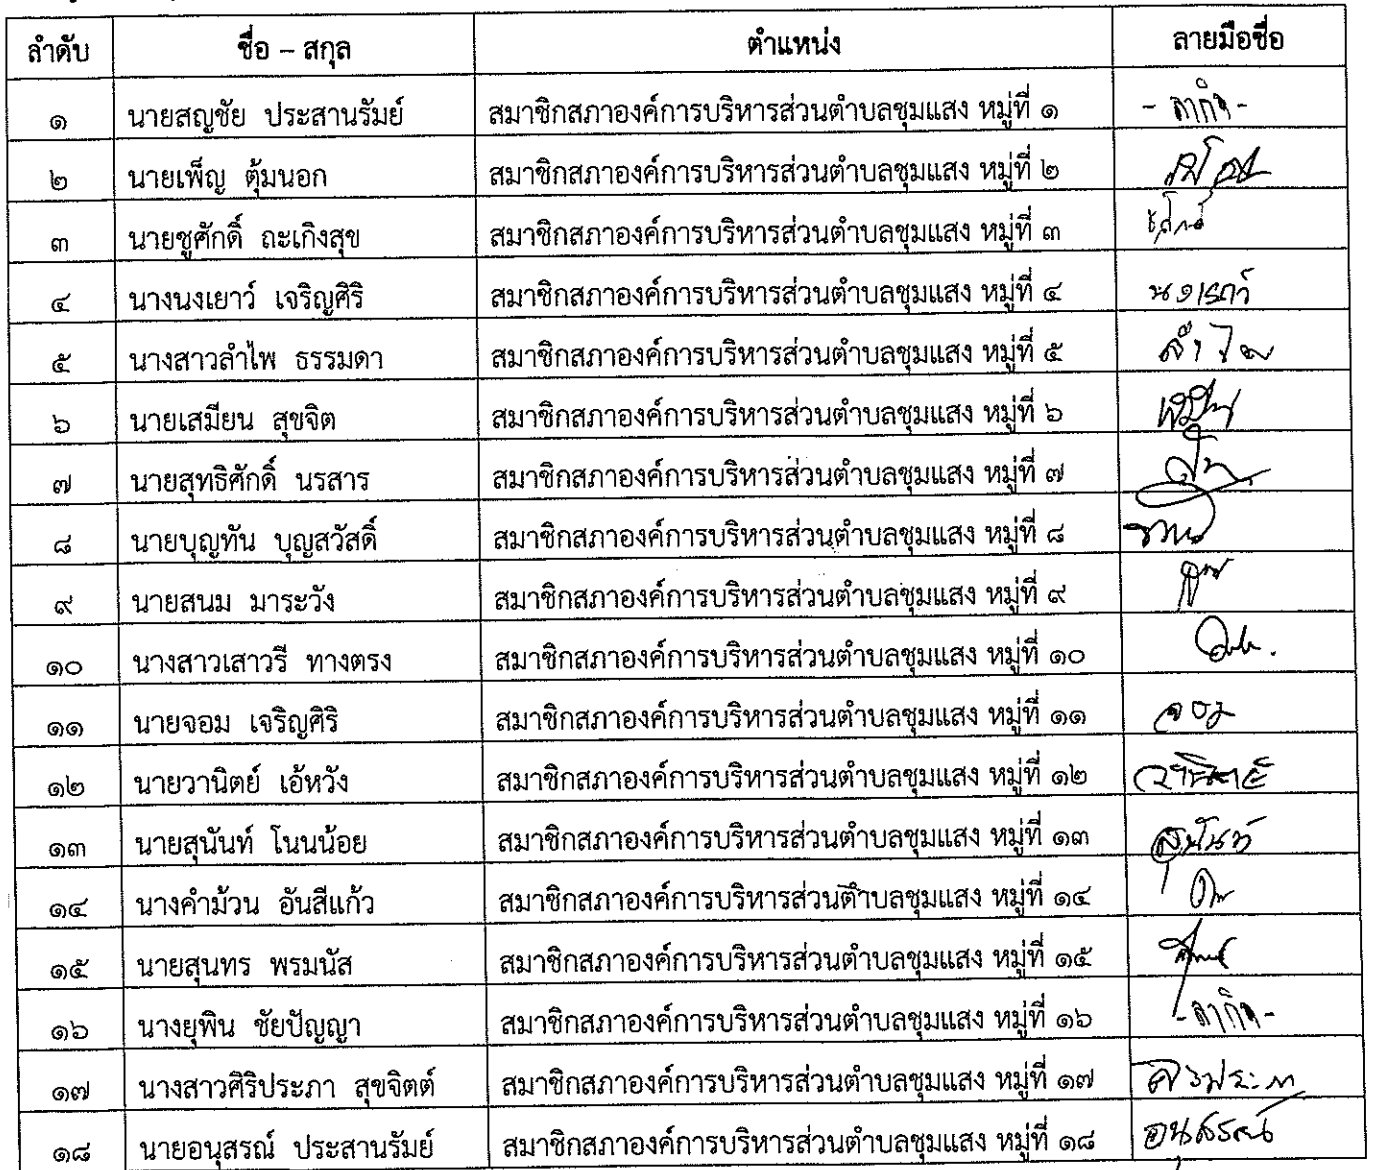 ลำดับ ชื่อ – สกุล ตำแหน่ง ลายมือชื่อ
๑ นายสญชัย ประสานรัมย์ สมาชิกสภาองค์การบริหารส่วนตำบลชุมแสง หมู่ที่ ๑ - ลากิจ -
๒ นายเพ็ญ ตุ้มนอก สมาชิกสภาองค์การบริหารส่วนตำบลชุมแสง หมู่ที่ ๒
๓ นายชูศักดิ์ ถะเกิงสุข สมาชิกสภาองค์การบริหารส่วนตำบลชุมแสง หมู่ที่ ๓
๔ นางนงเยาว์ เจริญศิริ สมาชิกสภาองค์การบริหารส่วนตำบลชุมแสง หมู่ที่ ๔ นงเยาว์
๕ นางสาวลำไพ ธรรมดา สมาชิกสภาองค์การบริหารส่วนตำบลชุมแสง หมู่ที่ ๕ ลำไพ
๖ นายเสมียน สุขจิต สมาชิกสภาองค์การบริหารส่วนตำบลชุมแสง หมู่ที่ ๖
๗ นายสุทธิศักดิ์ นรสาร สมาชิกสภาองค์การบริหารส่วนตำบลชุมแสง หมู่ที่ ๗
๘ นายบุญทัน บุญสวัสดิ์ สมาชิกสภาองค์การบริหารส่วนตำบลชุมแสง หมู่ที่ ๘
๙ นายสนม มาระวัง สมาชิกสภาองค์การบริหารส่วนตำบลชุมแสง หมู่ที่ ๙
๑๐ นางสาวเสาวรี ทางตรง สมาชิกสภาองค์การบริหารส่วนตำบลชุมแสง หมู่ที่ ๑๐
๑๑ นายจอม เจริญศิริ สมาชิกสภาองค์การบริหารส่วนตำบลชุมแสง หมู่ที่ ๑๑ จอม
๑๒ นายวานิตย์ เอ้หวัง สมาชิกสภาองค์การบริหารส่วนตำบลชุมแสง หมู่ที่ ๑๒ วานิตย์
๑๓ นายสุนันท์ โนนน้อย สมาชิกสภาองค์การบริหารส่วนตำบลชุมแสง หมู่ที่ ๑๓ สุนันท์
๑๔ นางคำม้วน อันสีแก้ว สมาชิกสภาองค์การบริหารส่วนตำบลชุมแสง หมู่ที่ ๑๔
๑๕ นายสุนทร พรมนัส สมาชิกสภาองค์การบริหารส่วนตำบลชุมแสง หมู่ที่ ๑๕
๑๖ นางยุพิน ชัยปัญญา สมาชิกสภาองค์การบริหารส่วนตำบลชุมแสง หมู่ที่ ๑๖ - ลากิจ -
๑๗ นางสาวศิริประภา สุขจิตต์ สมาชิกสภาองค์การบริหารส่วนตำบลชุมแสง หมู่ที่ ๑๗
๑๘ นายอนุสรณ์ ประสานรัมย์ สมาชิกสภาองค์การบริหารส่วนตำบลชุมแสง หมู่ที่ ๑๘ อนุสรณ์